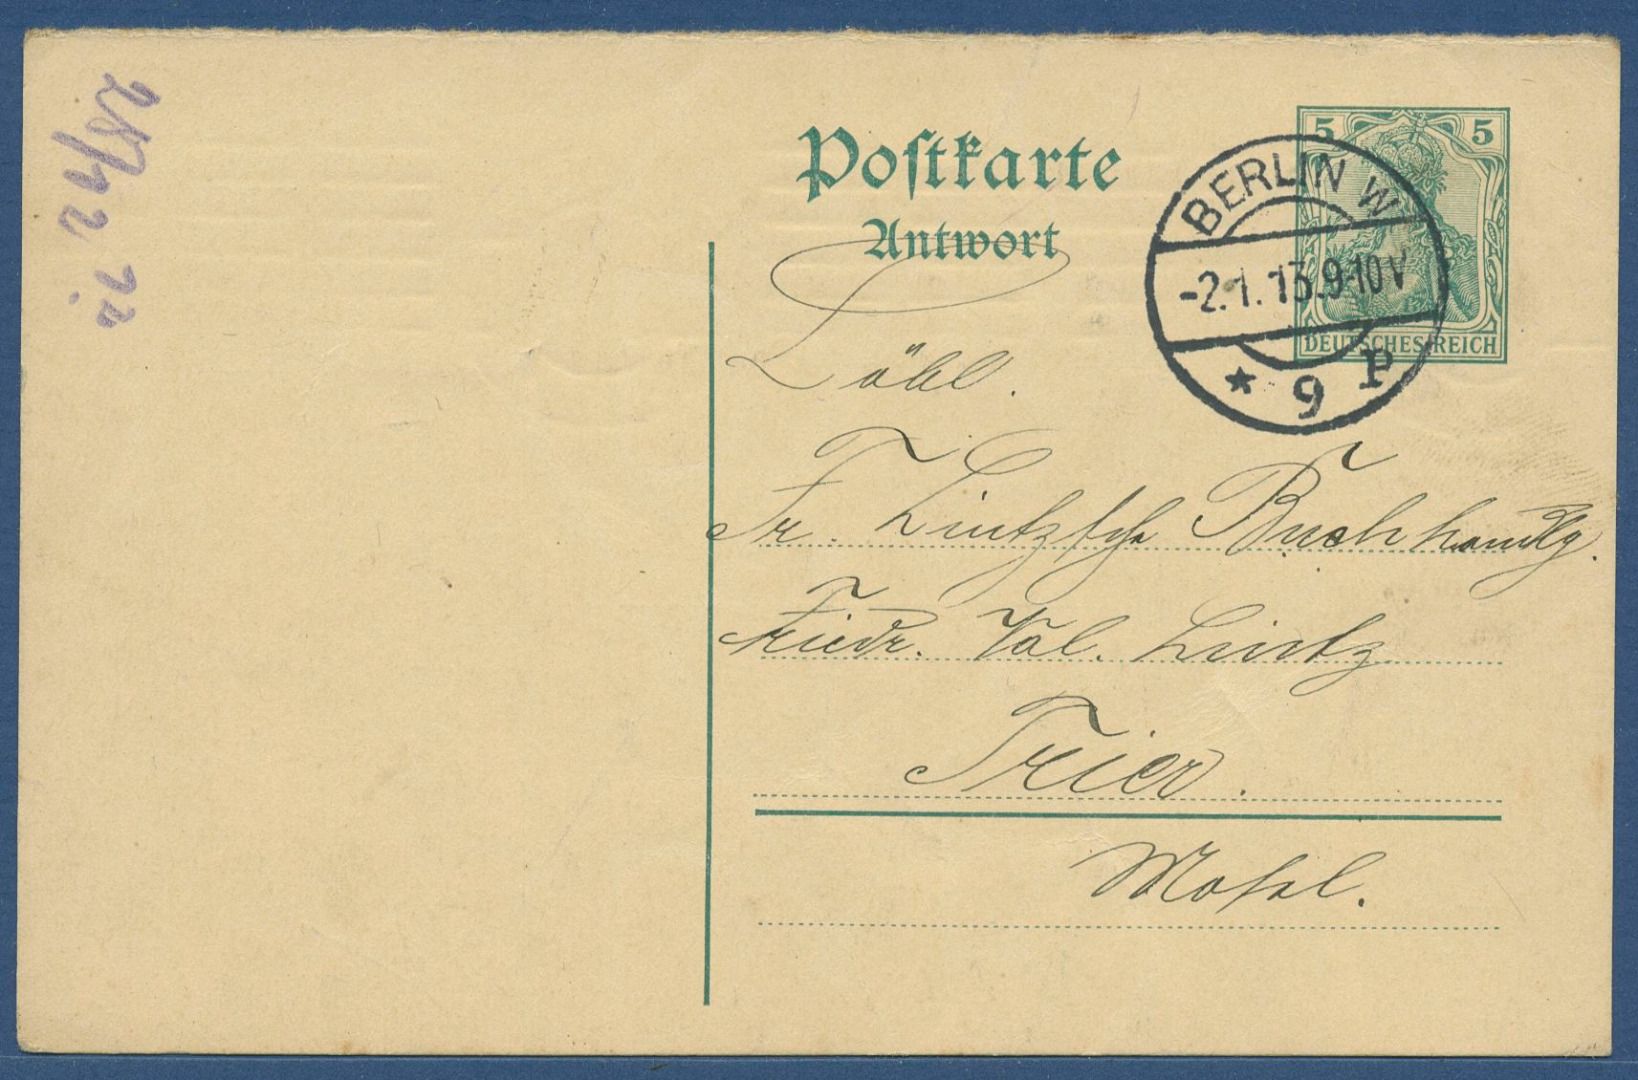 Postkarte
Antwort
5 5
DEUTSCHES REICH
BERLIN W
-2.1.13.9-10V
* 9 P
Löbl.
Fr. Lintz'sche Buchhandlg.
Friedr. Val. Lintz
Trier.
Mosel.